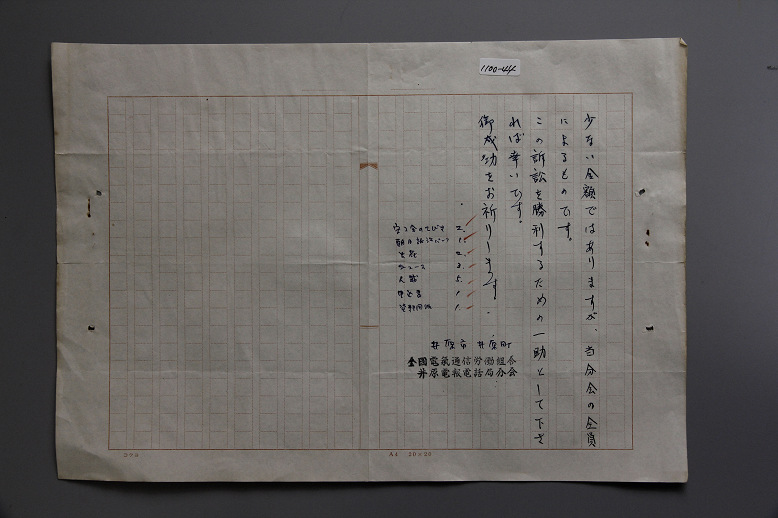 1100-44
少ない金額ではありますが、当分会の全員
によるものです。
この訴訟を勝利するための一助として下さ
れば幸いです。
御成功をお祈りします.
守る会のてびき 2.
朝日訴訟 1.
2.
ニュース 3.
人 5.
申込書 1
1.
井原市 井原町
全国電気通信労働組合
井原電報電話局分会
コクヨ
A4 20×20